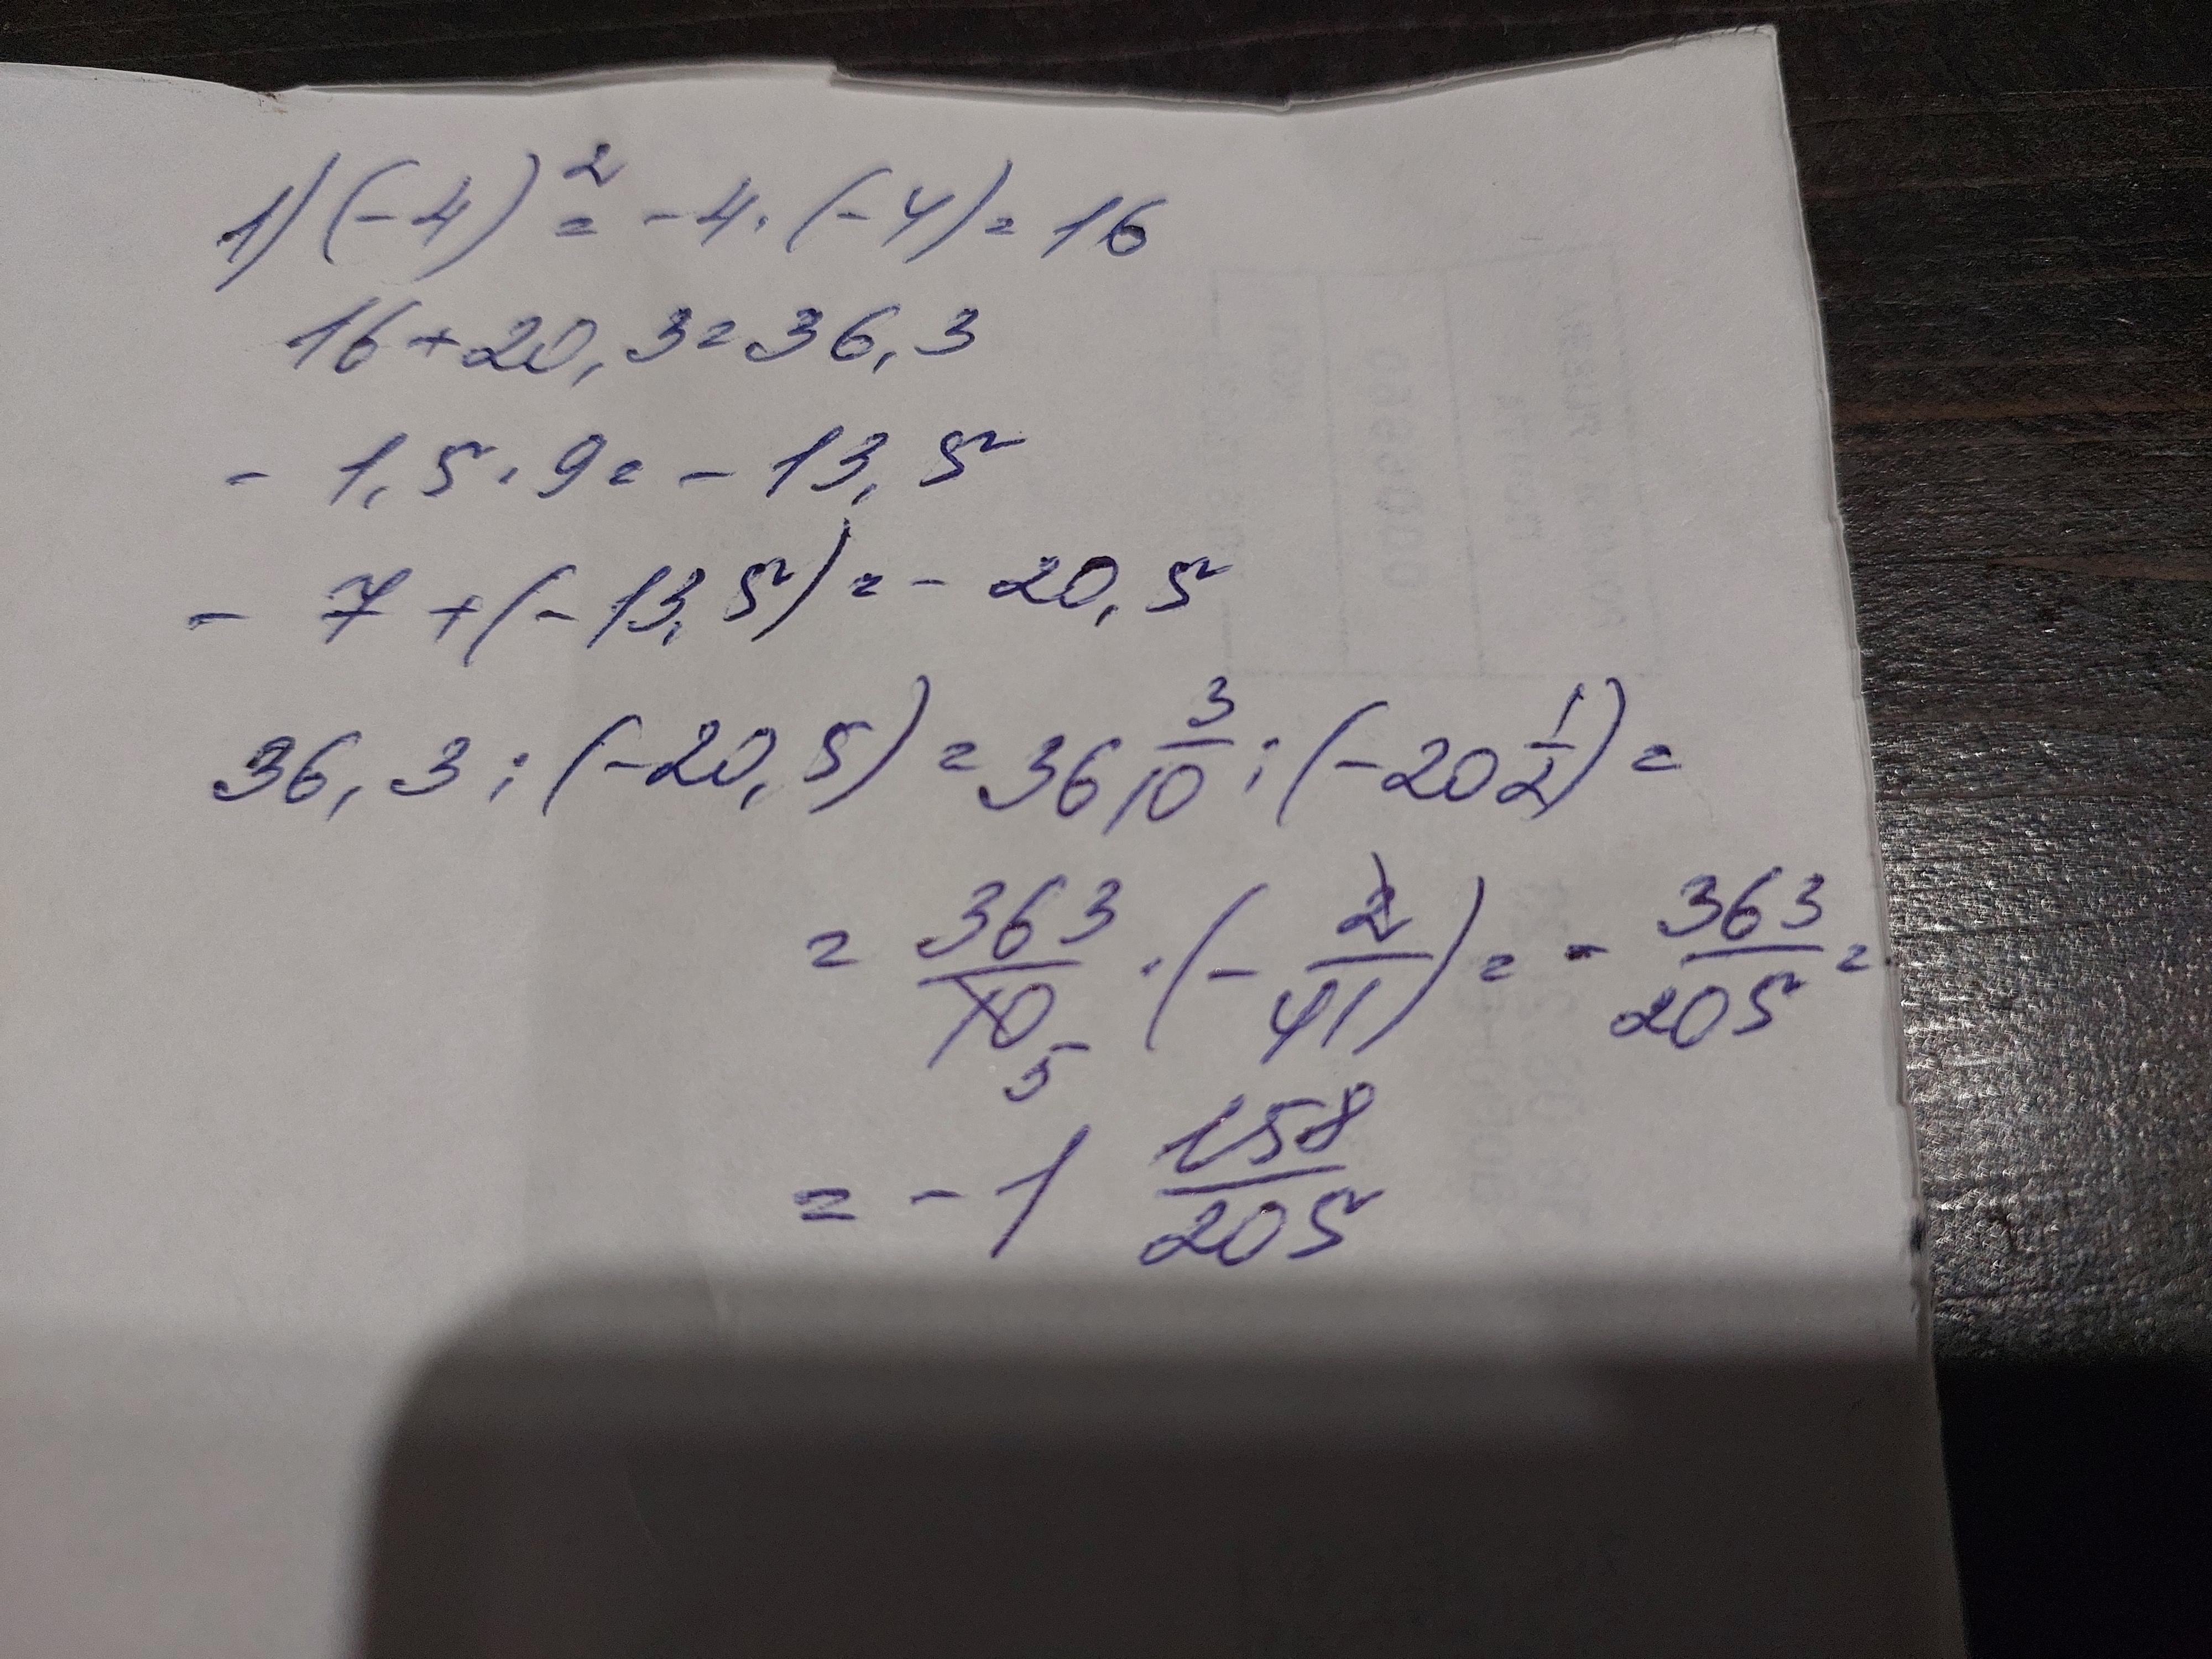 1) (-4)² = -4 · (-4) = 16
16 + 20,3 = 36,3
- 1,5 · 9 = - 13,5
- 7 + (-13,5) = - 20,5
36,3 : (-20,5) = 36 3/10 : (-20 1/2) =
= 363/10 5 · (- 2/41) = - 363/205 =
= - 1 158/205